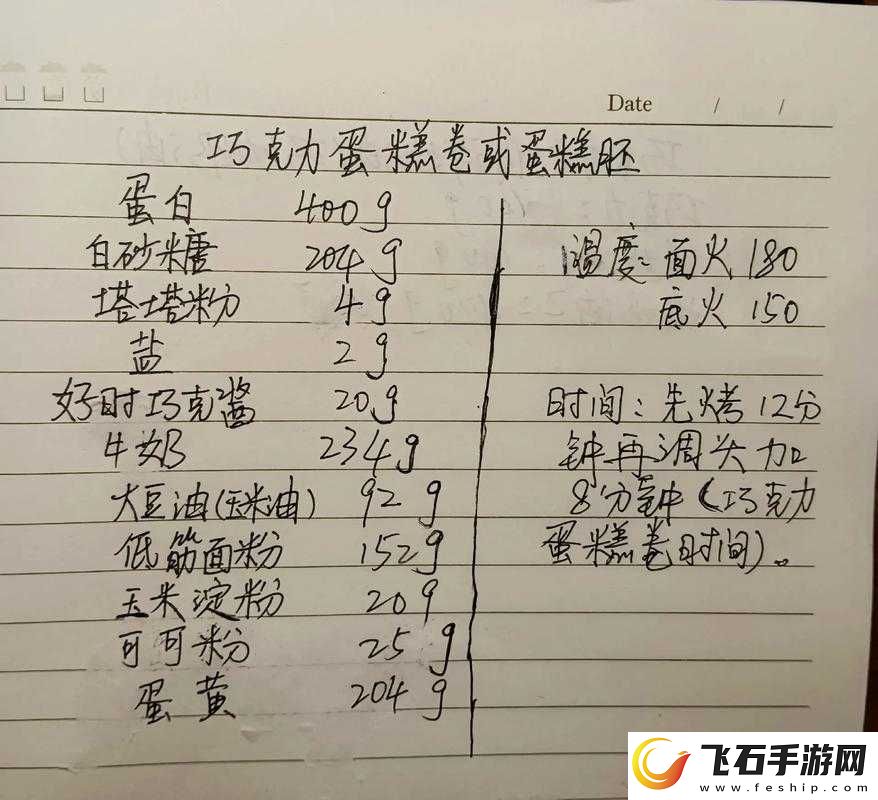 Date / /
巧克力蛋糕卷或蛋糕胚
蛋白 400g
白砂糖 204g
塔塔粉 4g
盐 2g
好时巧克酱 20g
牛奶 234g
大豆油(玉米油) 92g
低筋面粉 152g
玉米淀粉 20g
可可粉 25g
蛋黄 204g
温度:面火180
底火150
时间:先烤12分
钟再调头加
8分钟(巧克力
蛋糕卷时间)。
飞石手游网
www.feship.com